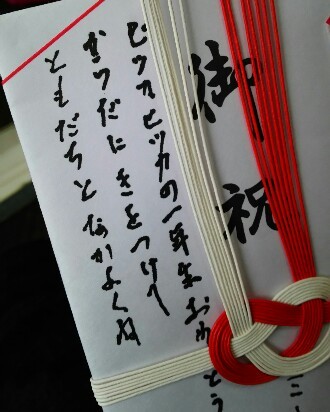 御祝
ピッカピッカの一年生おめでとう
からだにきをつけて
ともだちとなかよくね